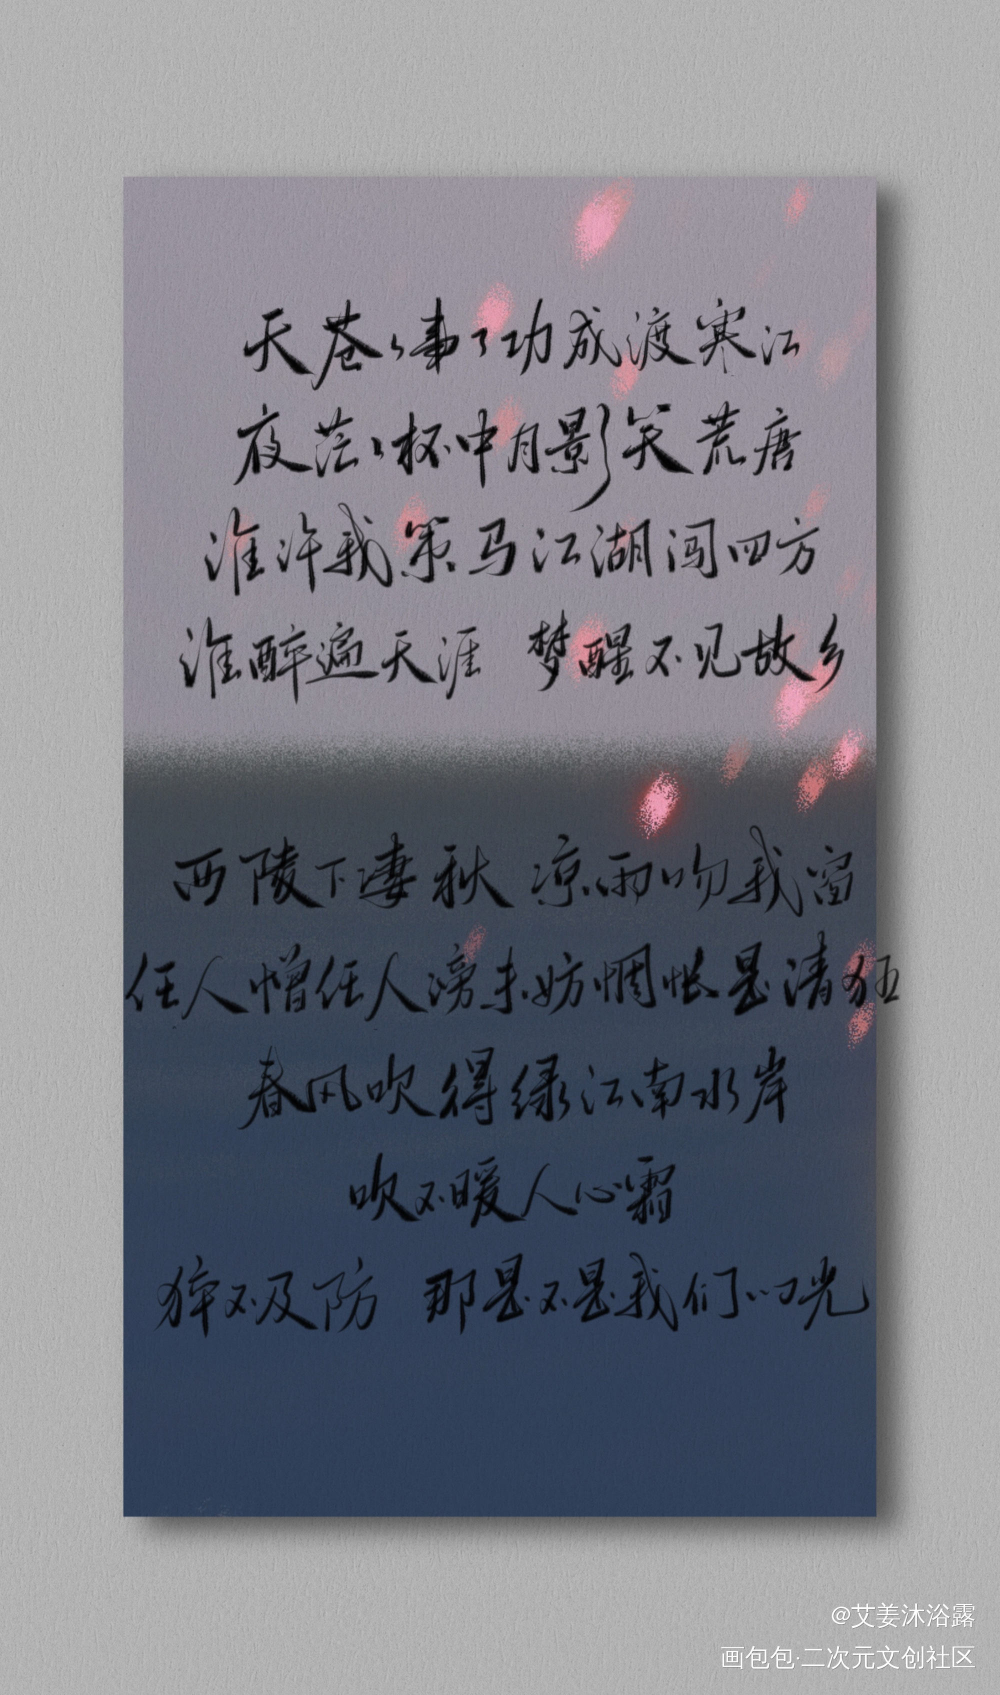 天苍苍事了功成渡寒江
夜茫茫杯中月影笑荒唐
谁许我策马江湖闯四方
谁醉遍天涯 梦醒不见故乡
西陵下凄秋 凉雨吻我窗
任人憎任人谤未妨惆怅是清狂
春风吹得绿江南水岸
吹不暖人心霜
猝不及防 那是不是我们的光
@艾姜沐浴露
画包包·二次元文创社区